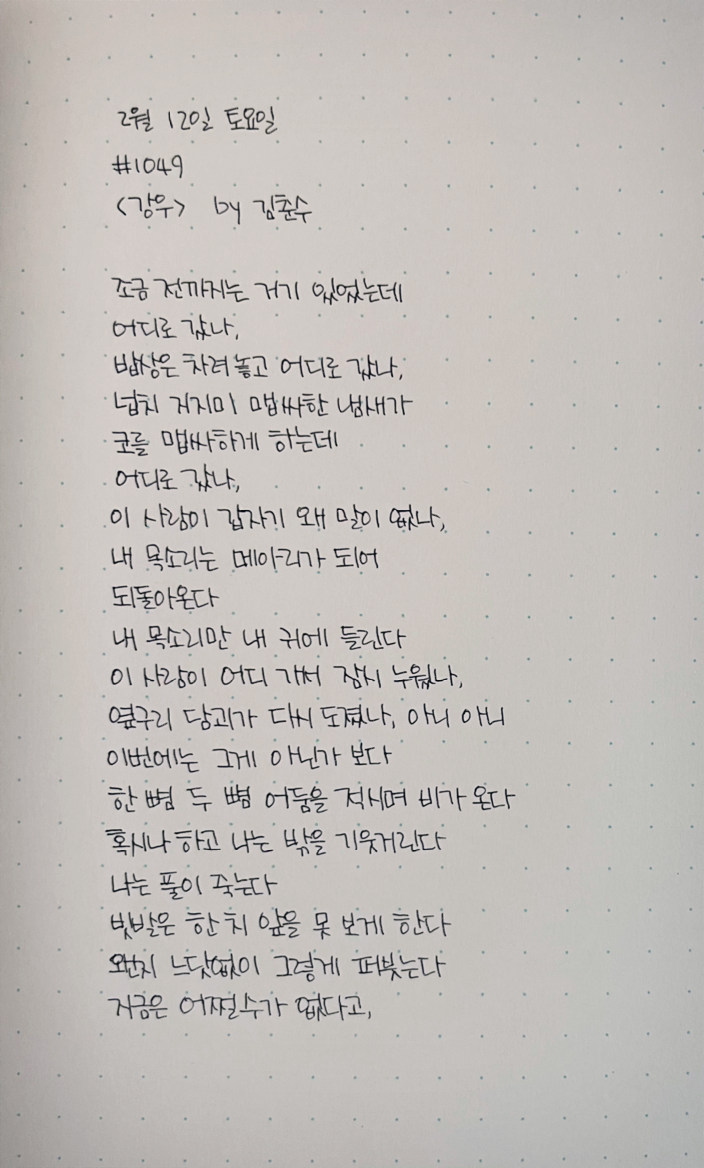 2월 12일 토요일
#1049
<강우> by 김춘수
조금 전까지는 거기 있었는데
어디로 갔나,
밥상은 차려놓고 어디로 갔나,
넙치 지지미 맵싸한 냄새가
코를 맵싸하게 하는데
어디로 갔나,
이 사람이 갑자기 왜 말이 없나,
내 목소리는 메아리가 되어
되돌아온다
내 목소리만 내 귀에 들린다
이 사람이 어디 가서 잠시 누웠나,
옆구리 담괴가 다시 도졌나, 아니 아니
이번에는 그게 아닌가 보다
한 뼘 두 뼘 어둠을 적시며 비가 온다
혹시나 하고 나는 밖을 기웃거린다
나는 풀이 죽는다
빗발은 한 치 앞을 못 보게 한다
왠지 느닷없이 그렇게 퍼붓는다
지금은 어쩔 수가 없다고,